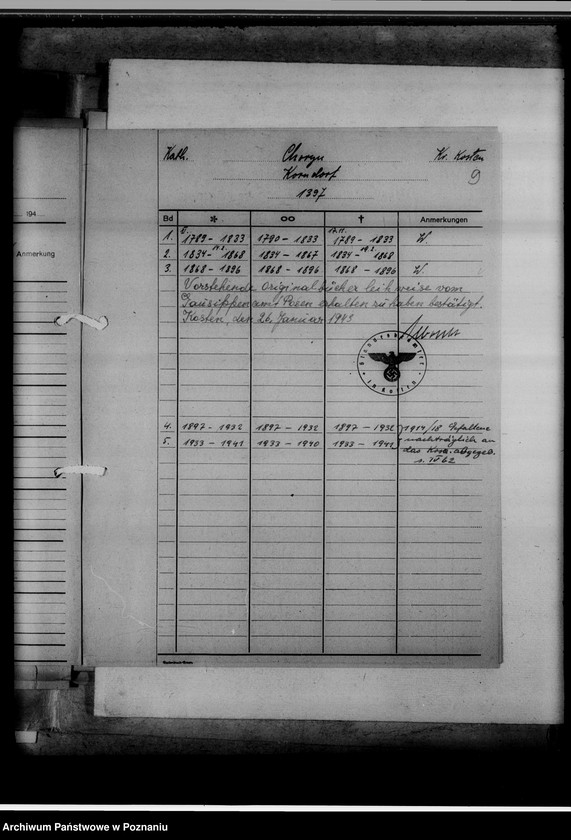 194
Anmerkung
Kath. Choryn Kr. Kosten
Korndorf 9
1397
Bd * ∞ † Anmerkungen
6. 17.11.
1. 1789 - 1833 1790 - 1833 1789 - 1833 W.
2. 1834 - 1868 1834 - 1867 1834 - 1868
3. 1868 - 1896 1868 - 1896 1868 - 1896 W.
Vorstehende Originalbücher leihweise vom
Gausippenamt Posen erhalten zu haben bestätigt.
Kosten, den 26. Januar 1943
Standesbeamter
in Kosten
4. 1897 - 1932 1897 - 1932 1897 - 1932 1914/18 Gefallene
5. 1933 - 1941 1933 - 1940 1933 - 1941 nachträglich an
das abgegeb.
s. 62
Archiwum Państwowe w Poznaniu